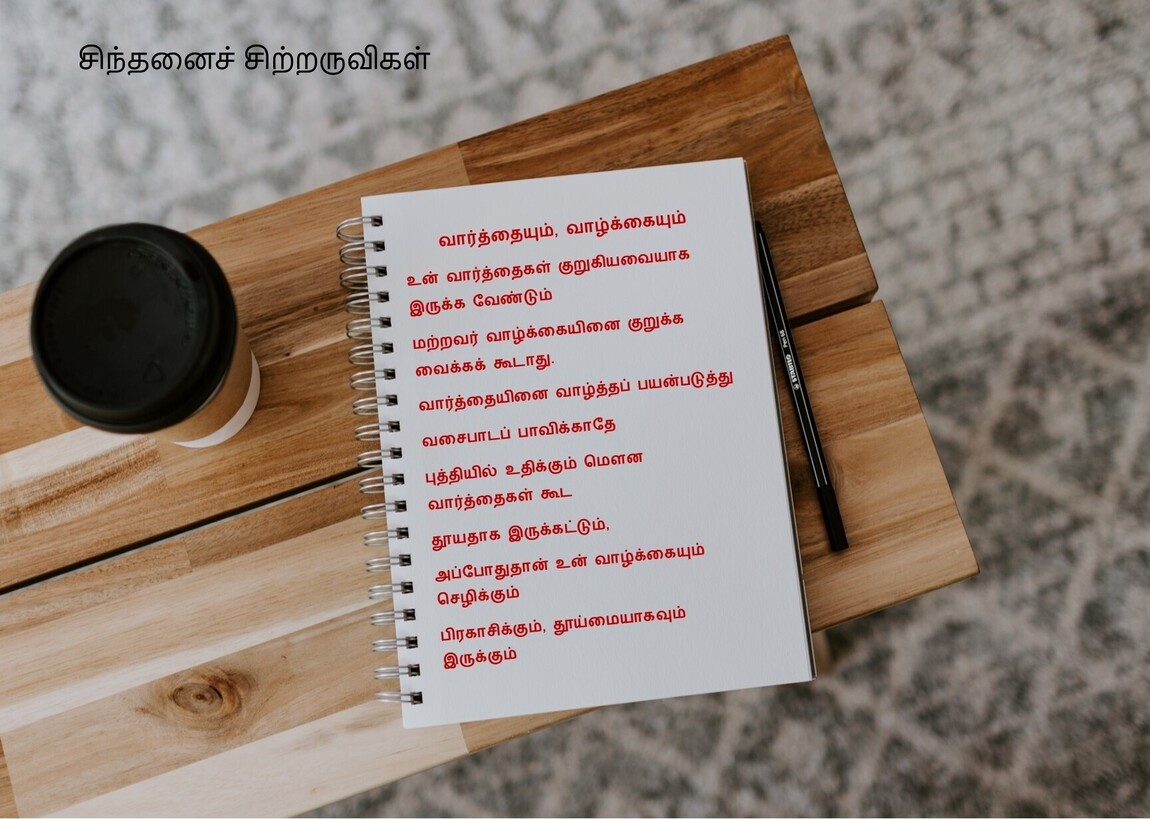 சிந்தனைச் சிற்றருவிகள்
வார்த்தையும், வாழ்க்கையும்
உன் வார்த்தைகள் குறுகியவையாக
இருக்க வேண்டும்
மற்றவர் வாழ்க்கையினை குறுக்க
வைக்கக் கூடாது.
வார்த்தையினை வாழ்த்தப் பயன்படுத்து
வசைபாடப் பாவிக்காதே
புத்தியில் உதிக்கும் மௌன
வார்த்தைகள் கூட
தூயதாக இருக்கட்டும்,
அப்போதுதான் உன் வாழ்க்கையும்
செழிக்கும்
பிரகாசிக்கும், தூய்மையாகவும்
இருக்கும்
STABILO Pen 68